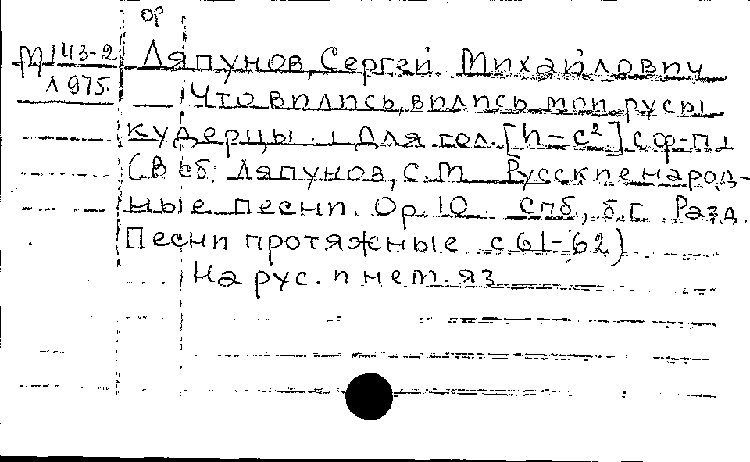 ор
М 143-2 Ляпунов, Сергей Михайлович
Л 975.
Что вились, вились мои русы
кудерцы. : Для гол. [h-c²] с ф-п.
(В сб: Ляпунов, С.М. Русские народ-
ные песни. Op. 10. Спб, б.г. Разд.
Песни протяжные с 61-62)
На рус. и нем. яз